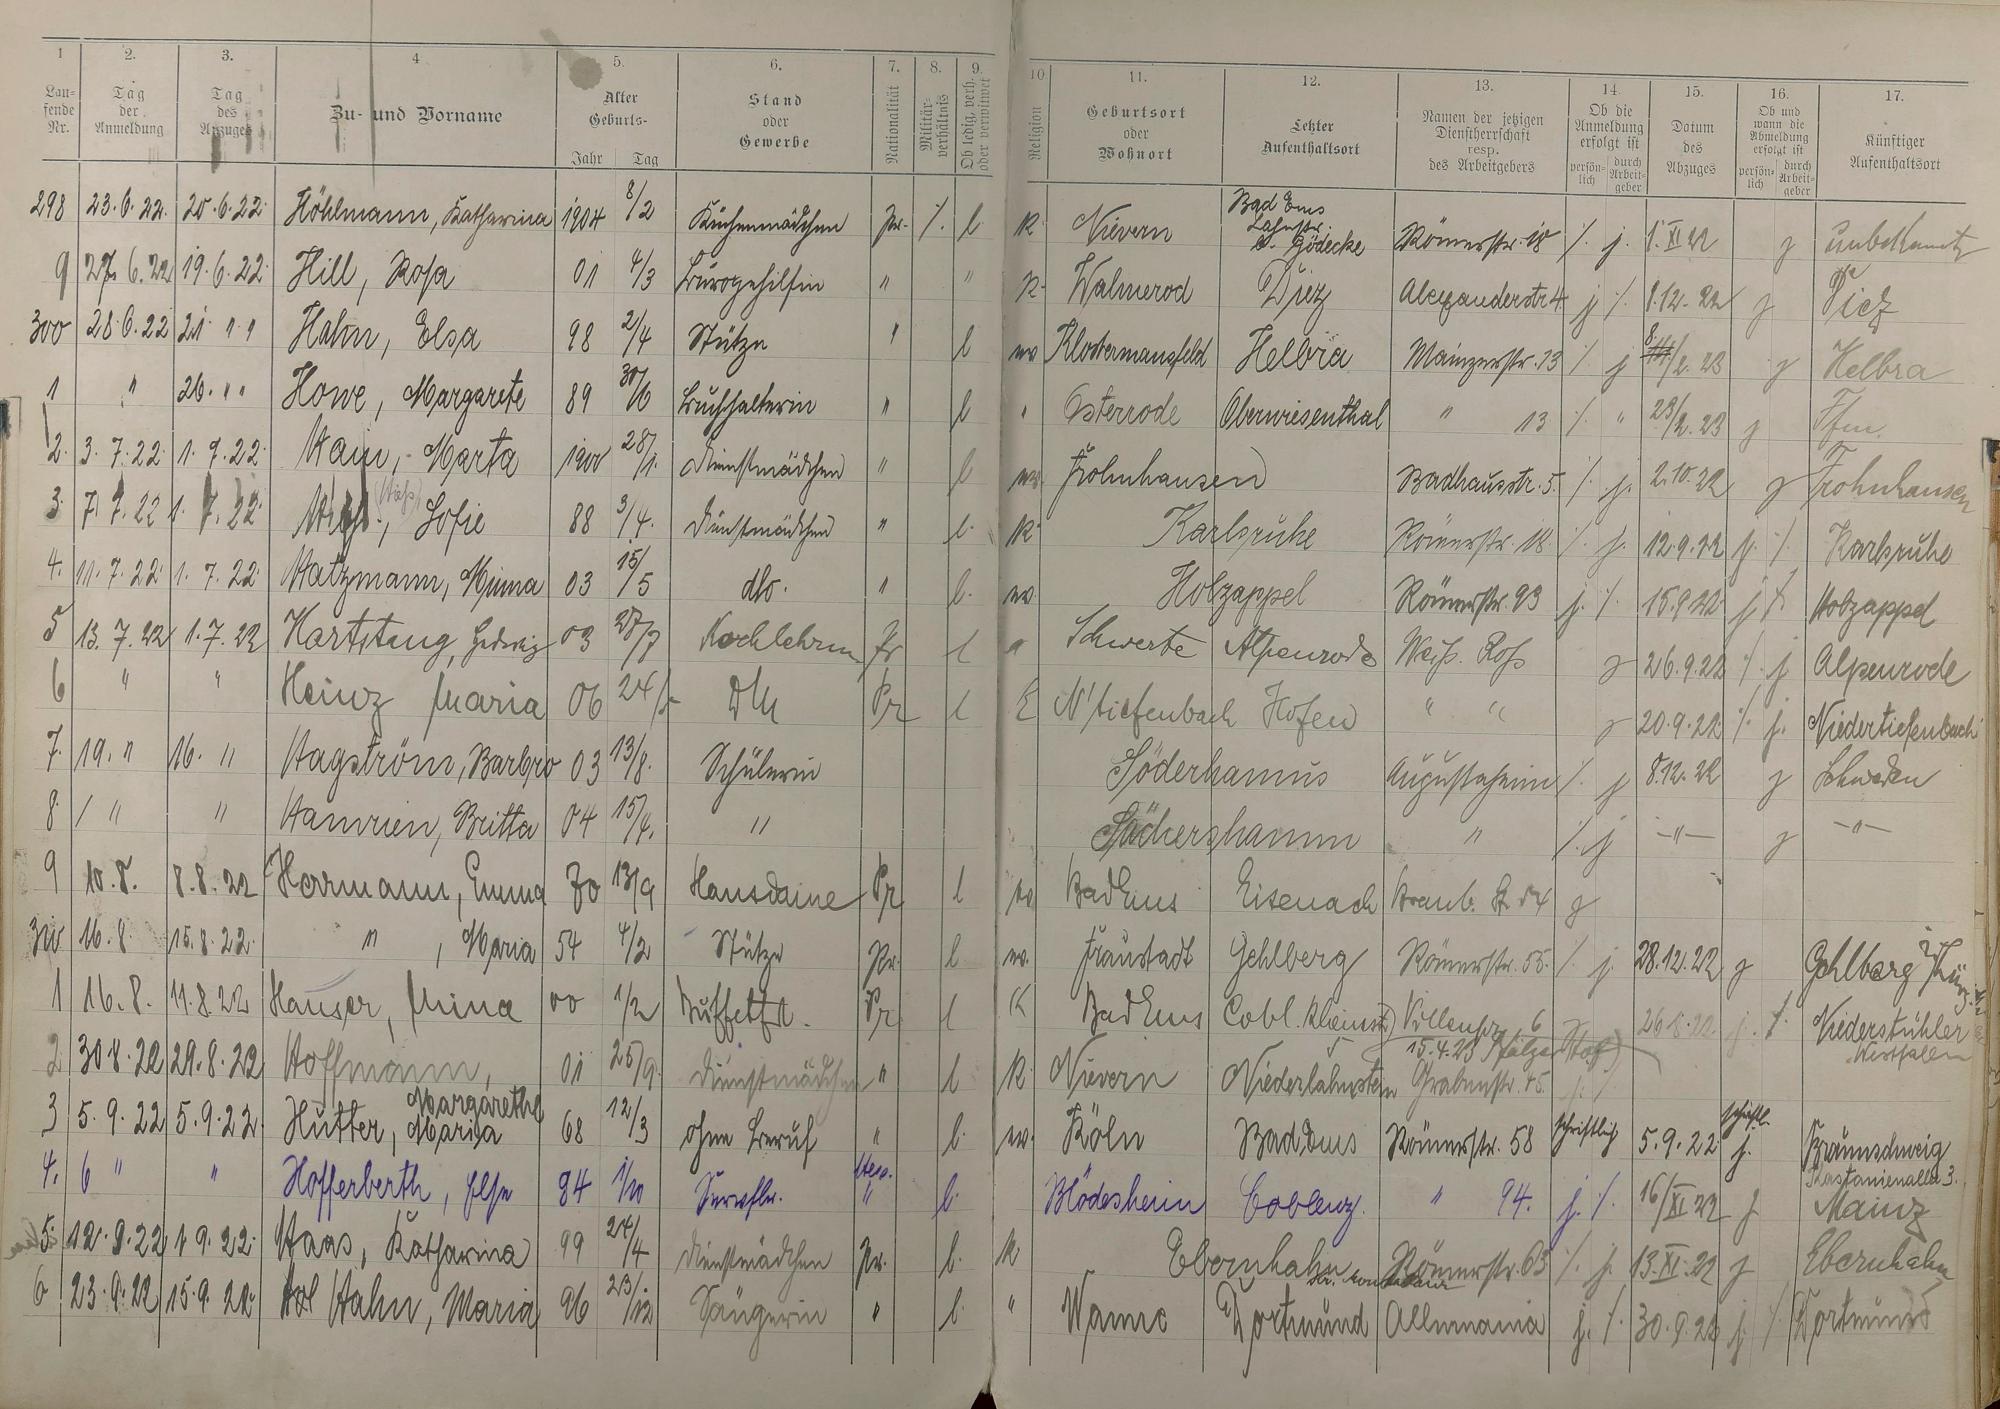 1 2. 3. 4 5. 6. 7. 8. 9. 10 11. 12. 13. 14 15. 16. 17.
Laufende Nr. Tag der Anmeldung Tag des Anzuges Zu- und Vorname Alter Geburts- Jahr Tag Stand oder Gewerbe Nationalität Militärverhältnis Ob ledig, verh. oder verwitwet Religion Geburtsort oder Wohnort Letzter Aufenthaltsort Namen der jetzigen Dienstherrschaft resp. des Arbeitgebers Ob die Anmeldung erfolgt ist persönlich durch Arbeitgeber Datum des Abzuges Ob und wann die Abmeldung erfolgt ist persönlich durch Arbeitgeber Künftiger Aufenthaltsort
298 23.6.22. 20.6.22. Höhlmann, Katharina 1904 8/2 Küchenmädchen Pr. ·/. l K. Nievern Bad Ems Lahnstr. Gödecke Römerstr. 18 ·/. j. 1.XI 22 j unbekannt
9 27.6.22 19.6.22. Hill, Rosa 01 4/3 Bürogehilfin " " K. Walmerod Diez Alexanderstr 4 j ·/. 1.12.22 j Diez
300 28.6.22 21. " " Hahn, Elsa 98 2/4 Stütze " l ev Klostermansfeld Helbra Mainzerstr. 13 ·/. j 8/2.23 j Helbra
1 " 26. " " Howe, Margarete 89 30/6 Buchhalterin " l " Osterode Oberwiesenthal " 13 ·/. " 23/2.23 j
2. 3.7.22. 1.7.22. Hain, Marta 1900 28/1. Dienstmädchen " l ev. Frohnhausen Badhausstr. 5. ·/. j. 2.10.22 j Frohnhausen
3. 7.7.22 1.7.22. Sofie 88 3/4. Dienstmädchen " l. K. Karlsruhe Römerstr. 18. ·/. j. 12.9.22 j. ·/. Karlsruhe
4. 11.7.22. 1.7.22. Hatzmann, Minna 03 15/5 dto. " l. ev. Holzappel Römerstr. 93 j. ·/. 15.9.22 j ·/. Holzappel
5 13.7.22 1.7.22 Hartstang, Hedwig 03 28/7 Kochlehrin Pr l " Schwerte Alpenrode Weiß. Roß j 26.9.22 ·/. j Alpenrode
6 " " Heinz Maria 06 24/5 Pr l E N'tiefenbach Hofen " " j 20.9.22 ·/. j. Niedertiefenbach
7. 19. " 16. " Hagström, Barbro 03 13/8. Schülerin Söderhamns Augustaheim ·/. j 8.12.22 j Schweden
8. / " " Britta 04 15/4. " " ·/. j —"— j —"—
9 10.8. 8.8.22 Herrmann, Emma 70 13/9 Hausdame Pr l ev Bad Ems Eisenach Braub. Str 54 j
310 16.8. 15.8.22. " , Maria 54 4/2 Stütze Pr. l ev. Fraustadt Gehlberg Römerstr. 55. ·/. j. 28.12.22 j Gehlberg i Thür.
1 16.8. 11.8.22 Hauser, Mina 00 1/2 Pr l K Bad Ems Cobl. Rheinstr 26.8.22. j. ·/. Niederstühler Westfalen
2 30 8.22 29.8.22 Hoffmann, Margarethe 01 25/9. Dienstmädchen " l K. Nievern Niederlahnstein 15.4.23 Pfälzer Hof Grabenstr. 15. ·/.
3 5.9.22 5.9.22. Hutter, Maria 68 12/3 ohne Beruf " l. ev. Köln Bad Ems Römerstr. 58 schriftlich 5.9.22 schriftl. j. Braunschweig Kastanienallee 3.
4. 6 " " Hofferberth, Else 94 1/10 Hess. " l. Blödesheim Coblenz. " 94. j. ·/. 16/XI 22 j Mainz
5. 12.9.22 1.9.22. Haas, Katharina 99 24/4 Dienstmädchen Pr. l. K Ebernhahn Römerstr. 63 ·/. j. 13.XI.22 j Ebernhahn
6 23.9.22 15.9.22. Hahn, Maria 96 23/12 Sängerin " l. " Wanne Dortmund Allemania j. ·/. 30.9.22 j. ·/. Dortmund